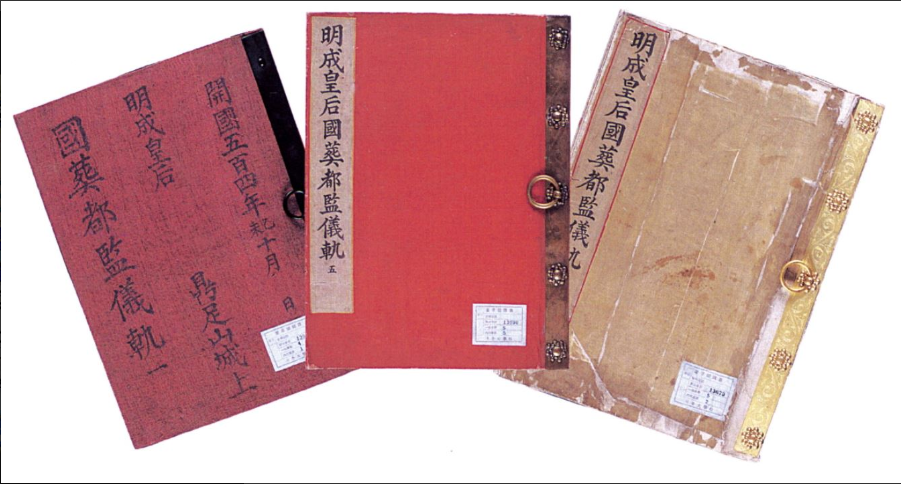 開國五百四年乙未十月 日
鼎足山城上
明成皇后
國葬都監儀軌一
明成皇后國葬都監儀軌 五
明成皇后國葬都監儀